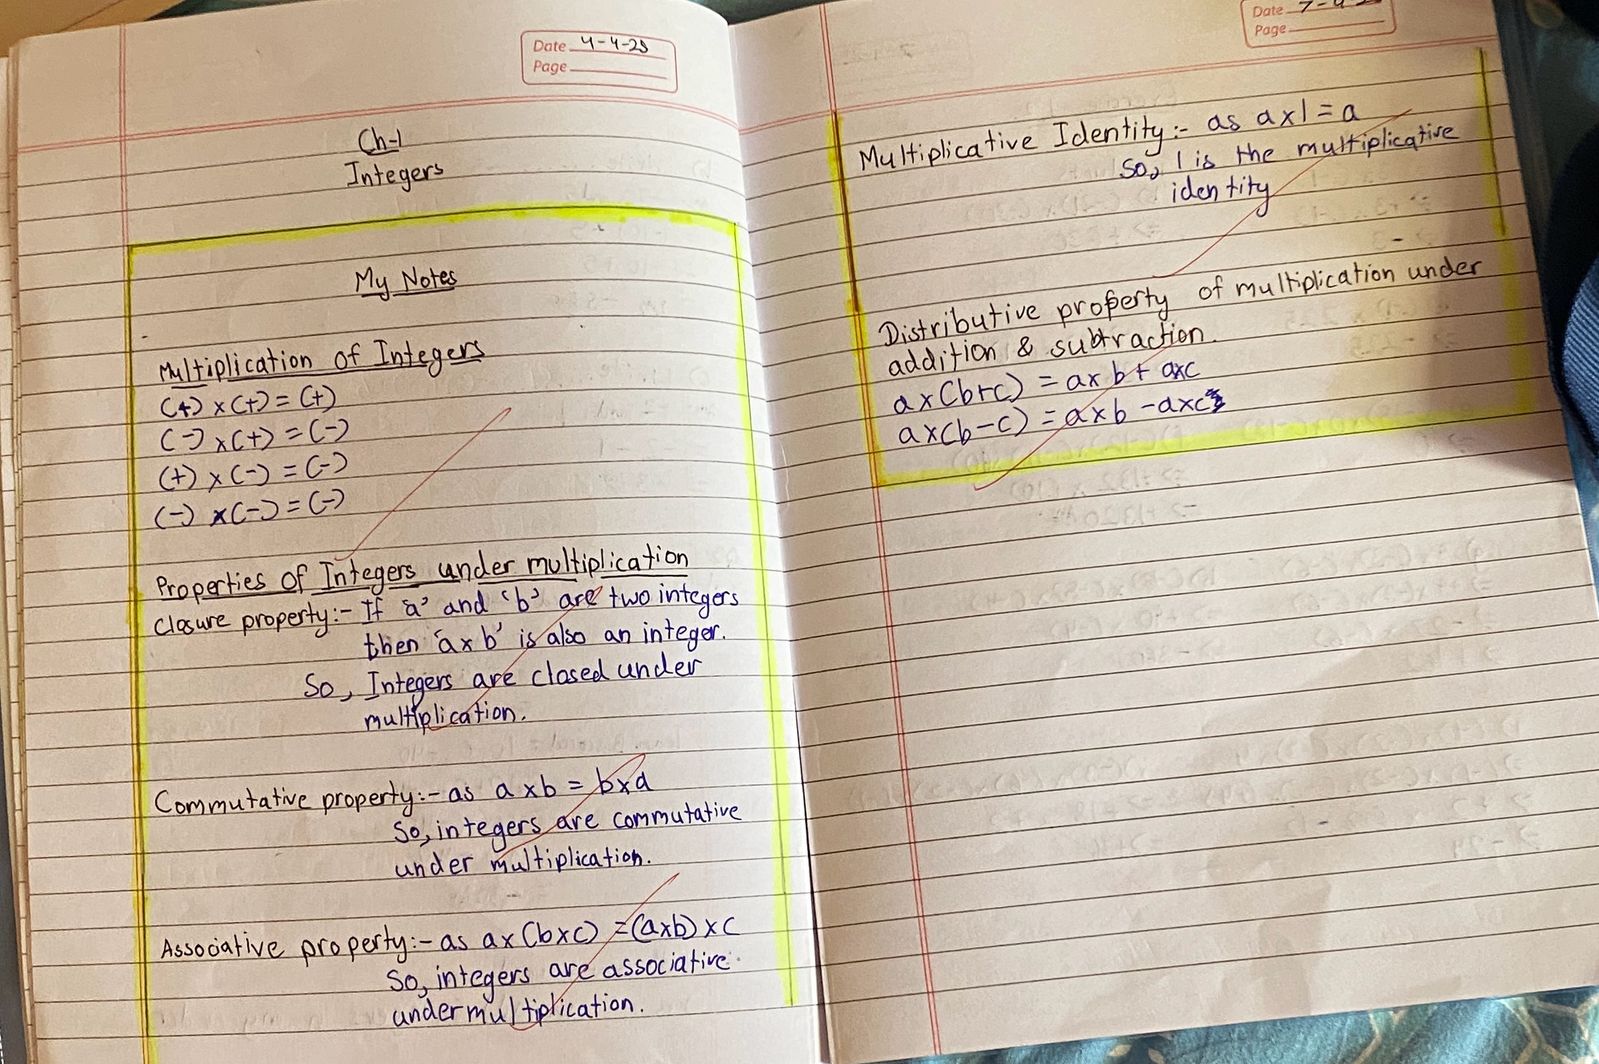 Date 4-4-25
Page
Ch-1
Integers
My Notes
Multiplication of Integers
(+) x (+) = (+)
(-) x (+) = (-)
(+) x (-) = (-)
(-) x (-) = (-)
Properties of Integers under multiplication
Closure property:- If 'a' and 'b' are two integers
then 'axb' is also an integer.
So, Integers are closed under
multiplication.
Commutative property:- as axb = bxa
So, integers are commutative
under multiplication.
Associative property:- as ax(bxc) = (axb)xc
So, integers are associative
under multiplication.
Date 7-4
Page
Multiplicative Identity:- as ax1 = a
So, 1 is the multiplicative
identity
Distributive property of multiplication under
addition & subtraction.
ax(b+c) = axb + axc
ax(b-c) = axb - axc